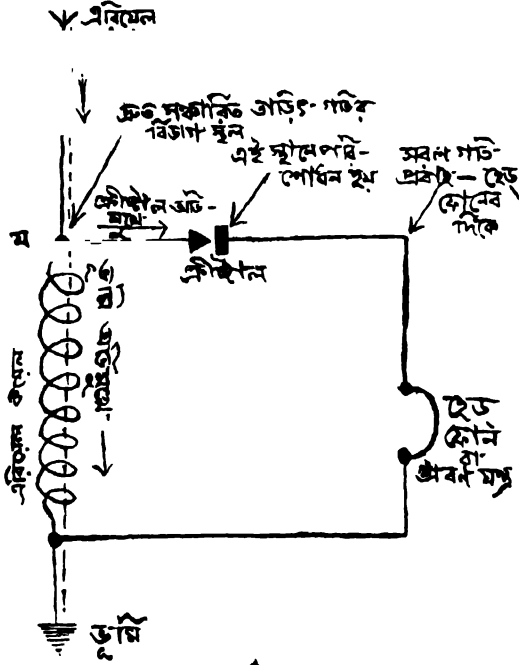 এরিয়েল
দ্রুত সঞ্চারিত তাড়িৎ-গতির
বিভাগ স্থল
এই স্থানে পরি-
শোধন হয়
সরল গতি-
প্রবাহ — হেড্
ফোনের
দিকে
ক্রীষ্টাল অভি-
মুখে
ম
ক্রীষ্টাল
এরিয়েল কয়েল
হেড
ফোন
বা
শ্রবণ যন্ত্র
ভূমি